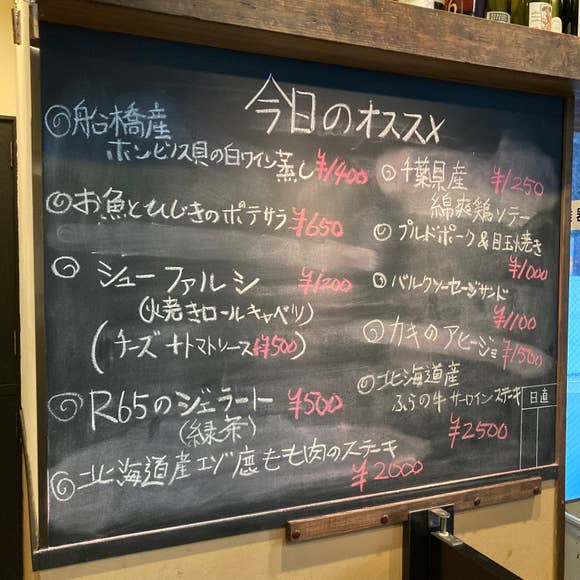 今日のオススメ
◎船橋産
ホンビノス貝の白ワイン蒸し ¥1400
◎お魚とひじきのポテサラ ¥650
◎シューファルシ ¥1200
(焼きロールキャベツ)
(チーズ+トマトソース ¥500)
◎R65のジェラート ¥500
(緑茶)
◎北海道産エゾ鹿もも肉のステーキ
¥2000
◎千葉県産 ¥1250
綿爽鶏ソテー
◎プルドポーク&目玉焼き
¥1000
◎バルクソーセージサンド
¥1100
◎カキのアヒージョ ¥1500
◎北海道産
ふらの牛サーロインステーキ
¥2500
日直